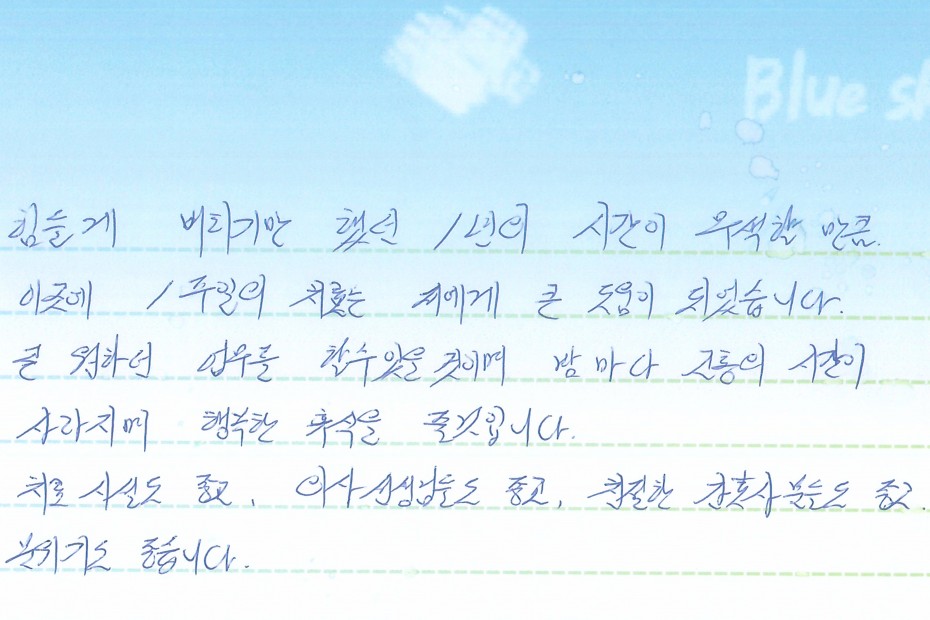 Blue sk
힘들게 버티기만 했던 1년의 시간이 무색할 만큼.
이곳에 1주일의 치료는 저에게 큰 도움이 되었습니다.
곧 원하던 업무를 할수있을것이며 밤마다 고통의 시간이
사라지며 행복한 휴식을 줄것입니다.
치료 시설도 좋고, 의사선생님들도 좋고, 친절한 간호사분들도 좋고.
분위기도 좋습니다.